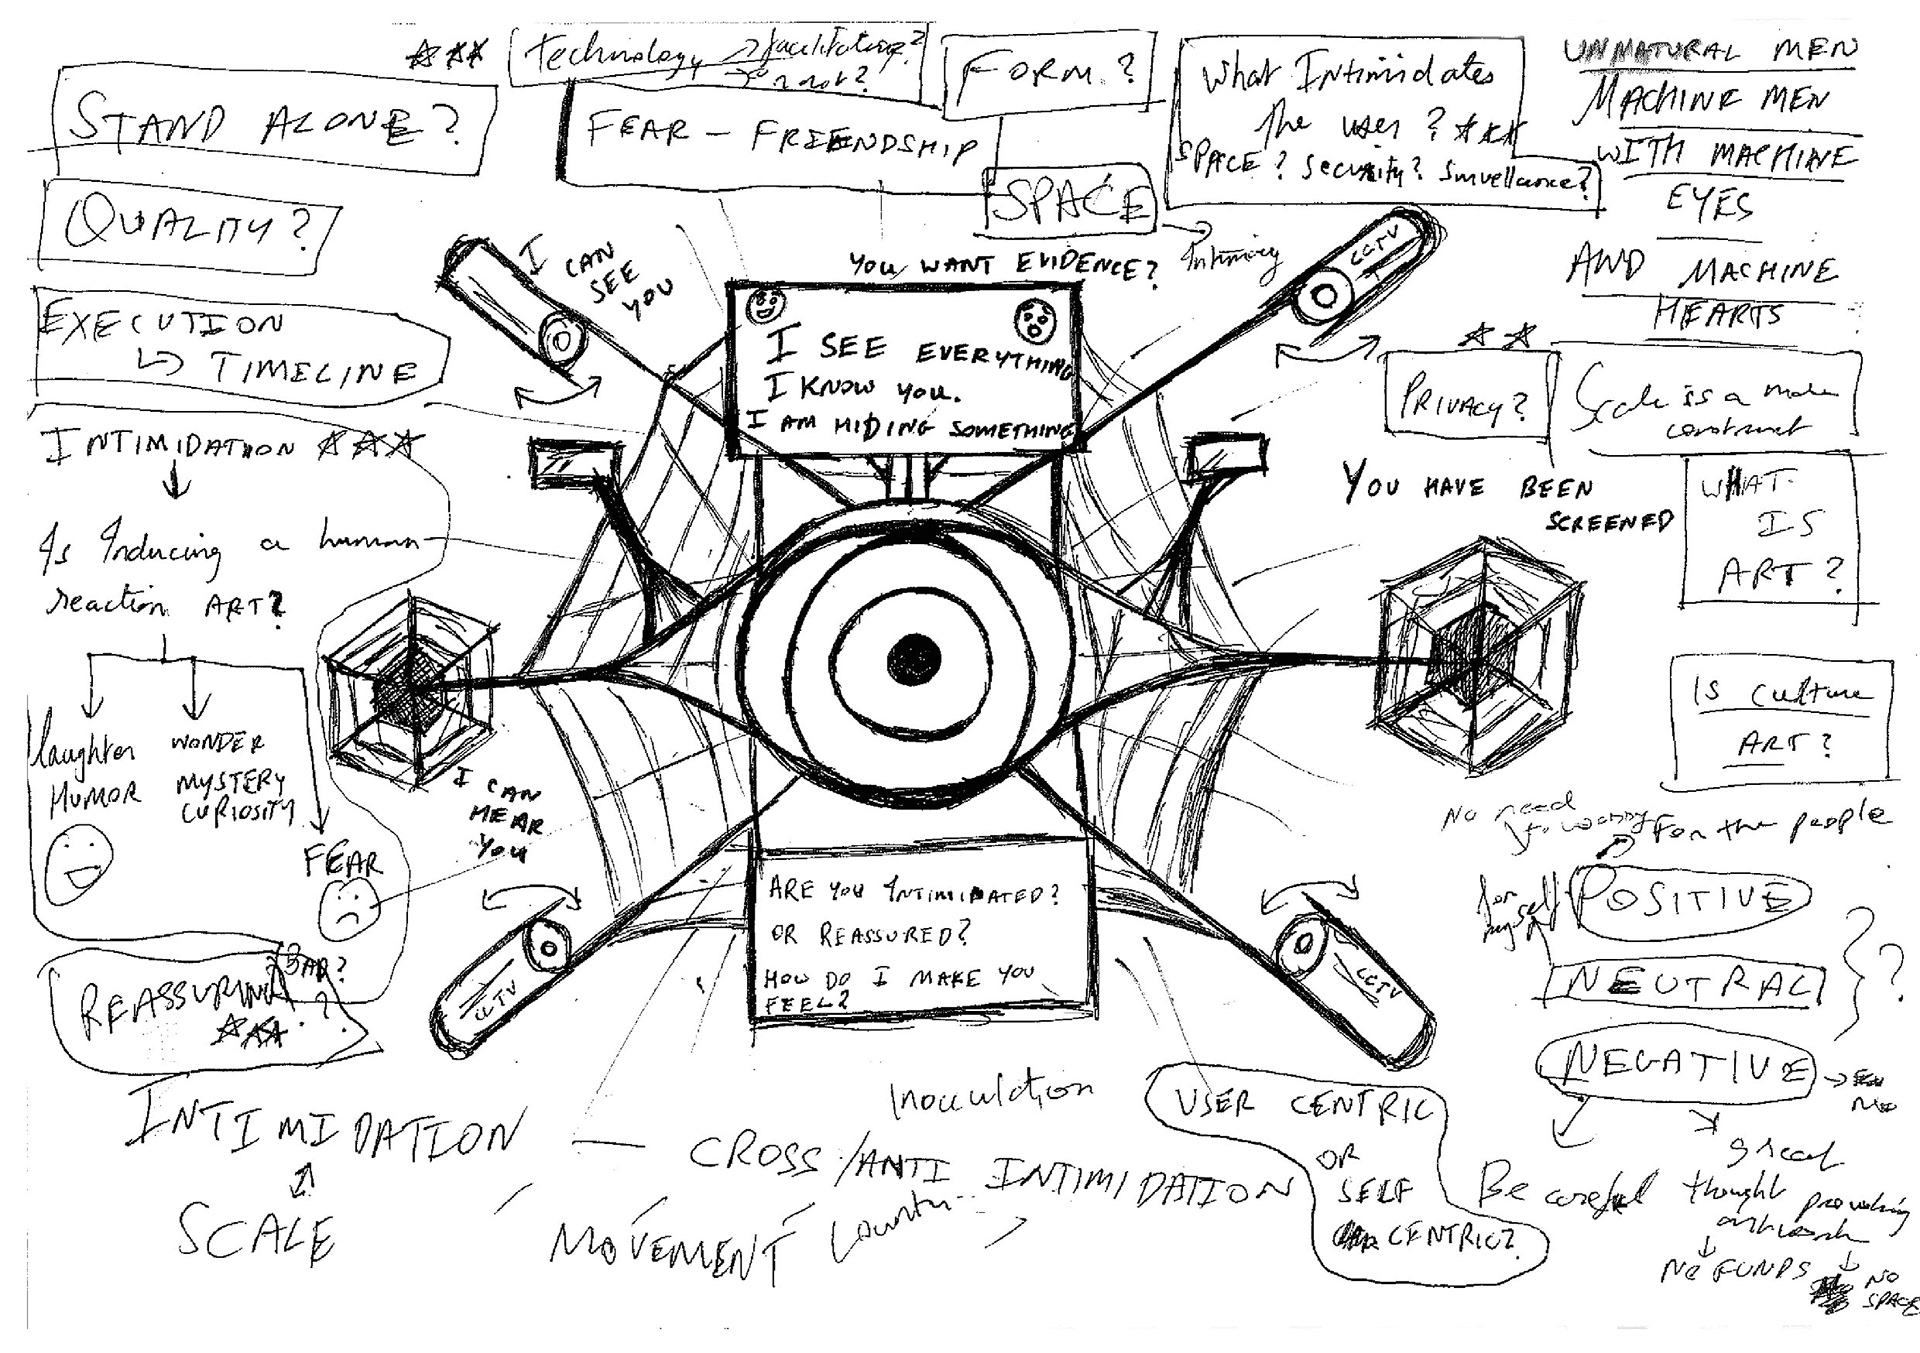 technology → facilitating?
→ or not?
FORM?
What Intimidates
the user?
SPACE? Security? Survellance?
UNNATURAL MEN
MACHINE MEN
WITH MACHINE
EYES
AND MACHINE
HEARTS
STAND ALONE?
FEAR - FRIENDSHIP
SPACE
QUALITY?
I CAN
SEE
YOU
YOU WANT EVIDENCE?
CCTV
EXECUTION
↳ TIMELINE
I SEE EVERYTHING
I KNOW YOU.
I AM HIDING SOMETHING
PRIVACY?
Scale is a
construct
INTIMIDATION
Is Inducing a human
reaction ART?
YOU HAVE BEEN
SCREENED
WHAT
IS
ART?
IS culture
ART?
laughter
HUMOR
WONDER
MYSTERY
CURIOSITY
FEAR
I CAN
HEAR
YOU
No need
to worry
For the people
for
myself
POSITIVE
NEUTRAL
NEGATIVE
?
ARE YOU INTIMIDATED?
OR REASSURED?
HOW DO I MAKE YOU
FEEL?
REASSURING
BAD?
?
CCTV
CCTV
Inoculation
INTIMIDATION — CROSS/ANTI INTIMIDATION
SCALE
MOVEMENT
Counter
USER CENTRIC
OR
SELF
CENTRIC?
Be careful
great
thought provoking
NO FUNDS
NO
SPACE